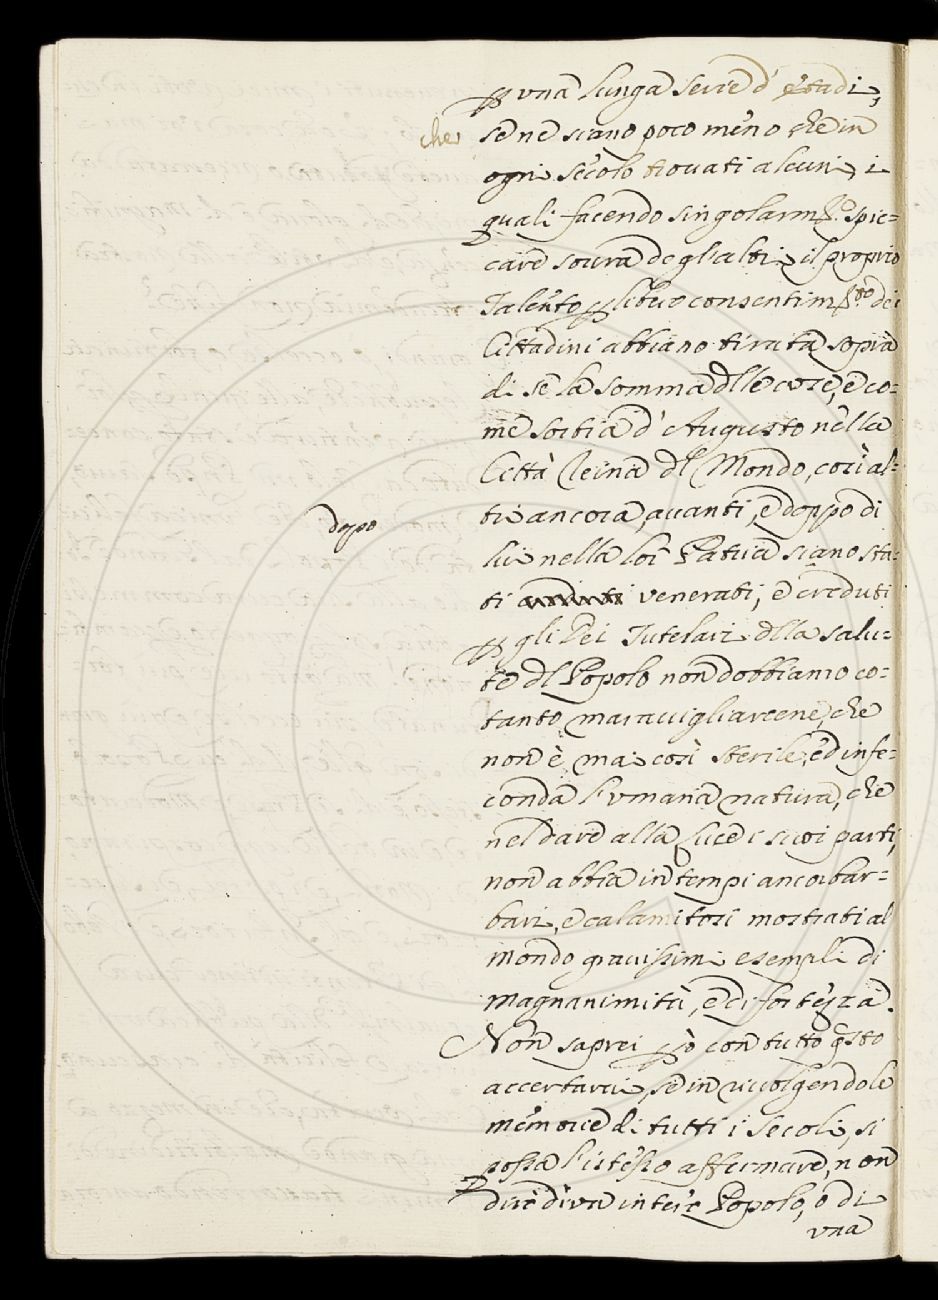 ꝑ vna lunga serie d'etadi,
che
se ne siano poco meno che in
ogni secolo trouati alcuni, i
quali facendo singolarm.to spic=
care soura degl'altri il proprio
Talento, ꝑ libero consentim.to dei
Cittadini abbiano tirata sopra
di se la somma dlle cose, e co=
me sortia d'Augusto nella
Città Reina dl Mondo, così al=
tri ancora, auanti, e doppo di
dopo
lui nella lor Patria siano sta=
ti venerati, e creduti
ꝑ gli Dei Tutelari dlla salu=
te dl Popolo non dobbiamo co=
tanto marauigliarcene, che
non è mai così sterile, ed infe=
conda l'vmana natura, che
nel dare alla luce i suoi parti,
non abbia in tempi ancor bar=
bari, e calamitosi mostrati al
mondo grauissimi esempli di
magnanimità, e di fortezza.
Non saprei ꝑò con tutto qsto
accertarui, se in riuolgendo le
memorie di tutti i secoli, si
possa l'istesso affermare, non
dirò d'vn intero Popolo, o di
vna